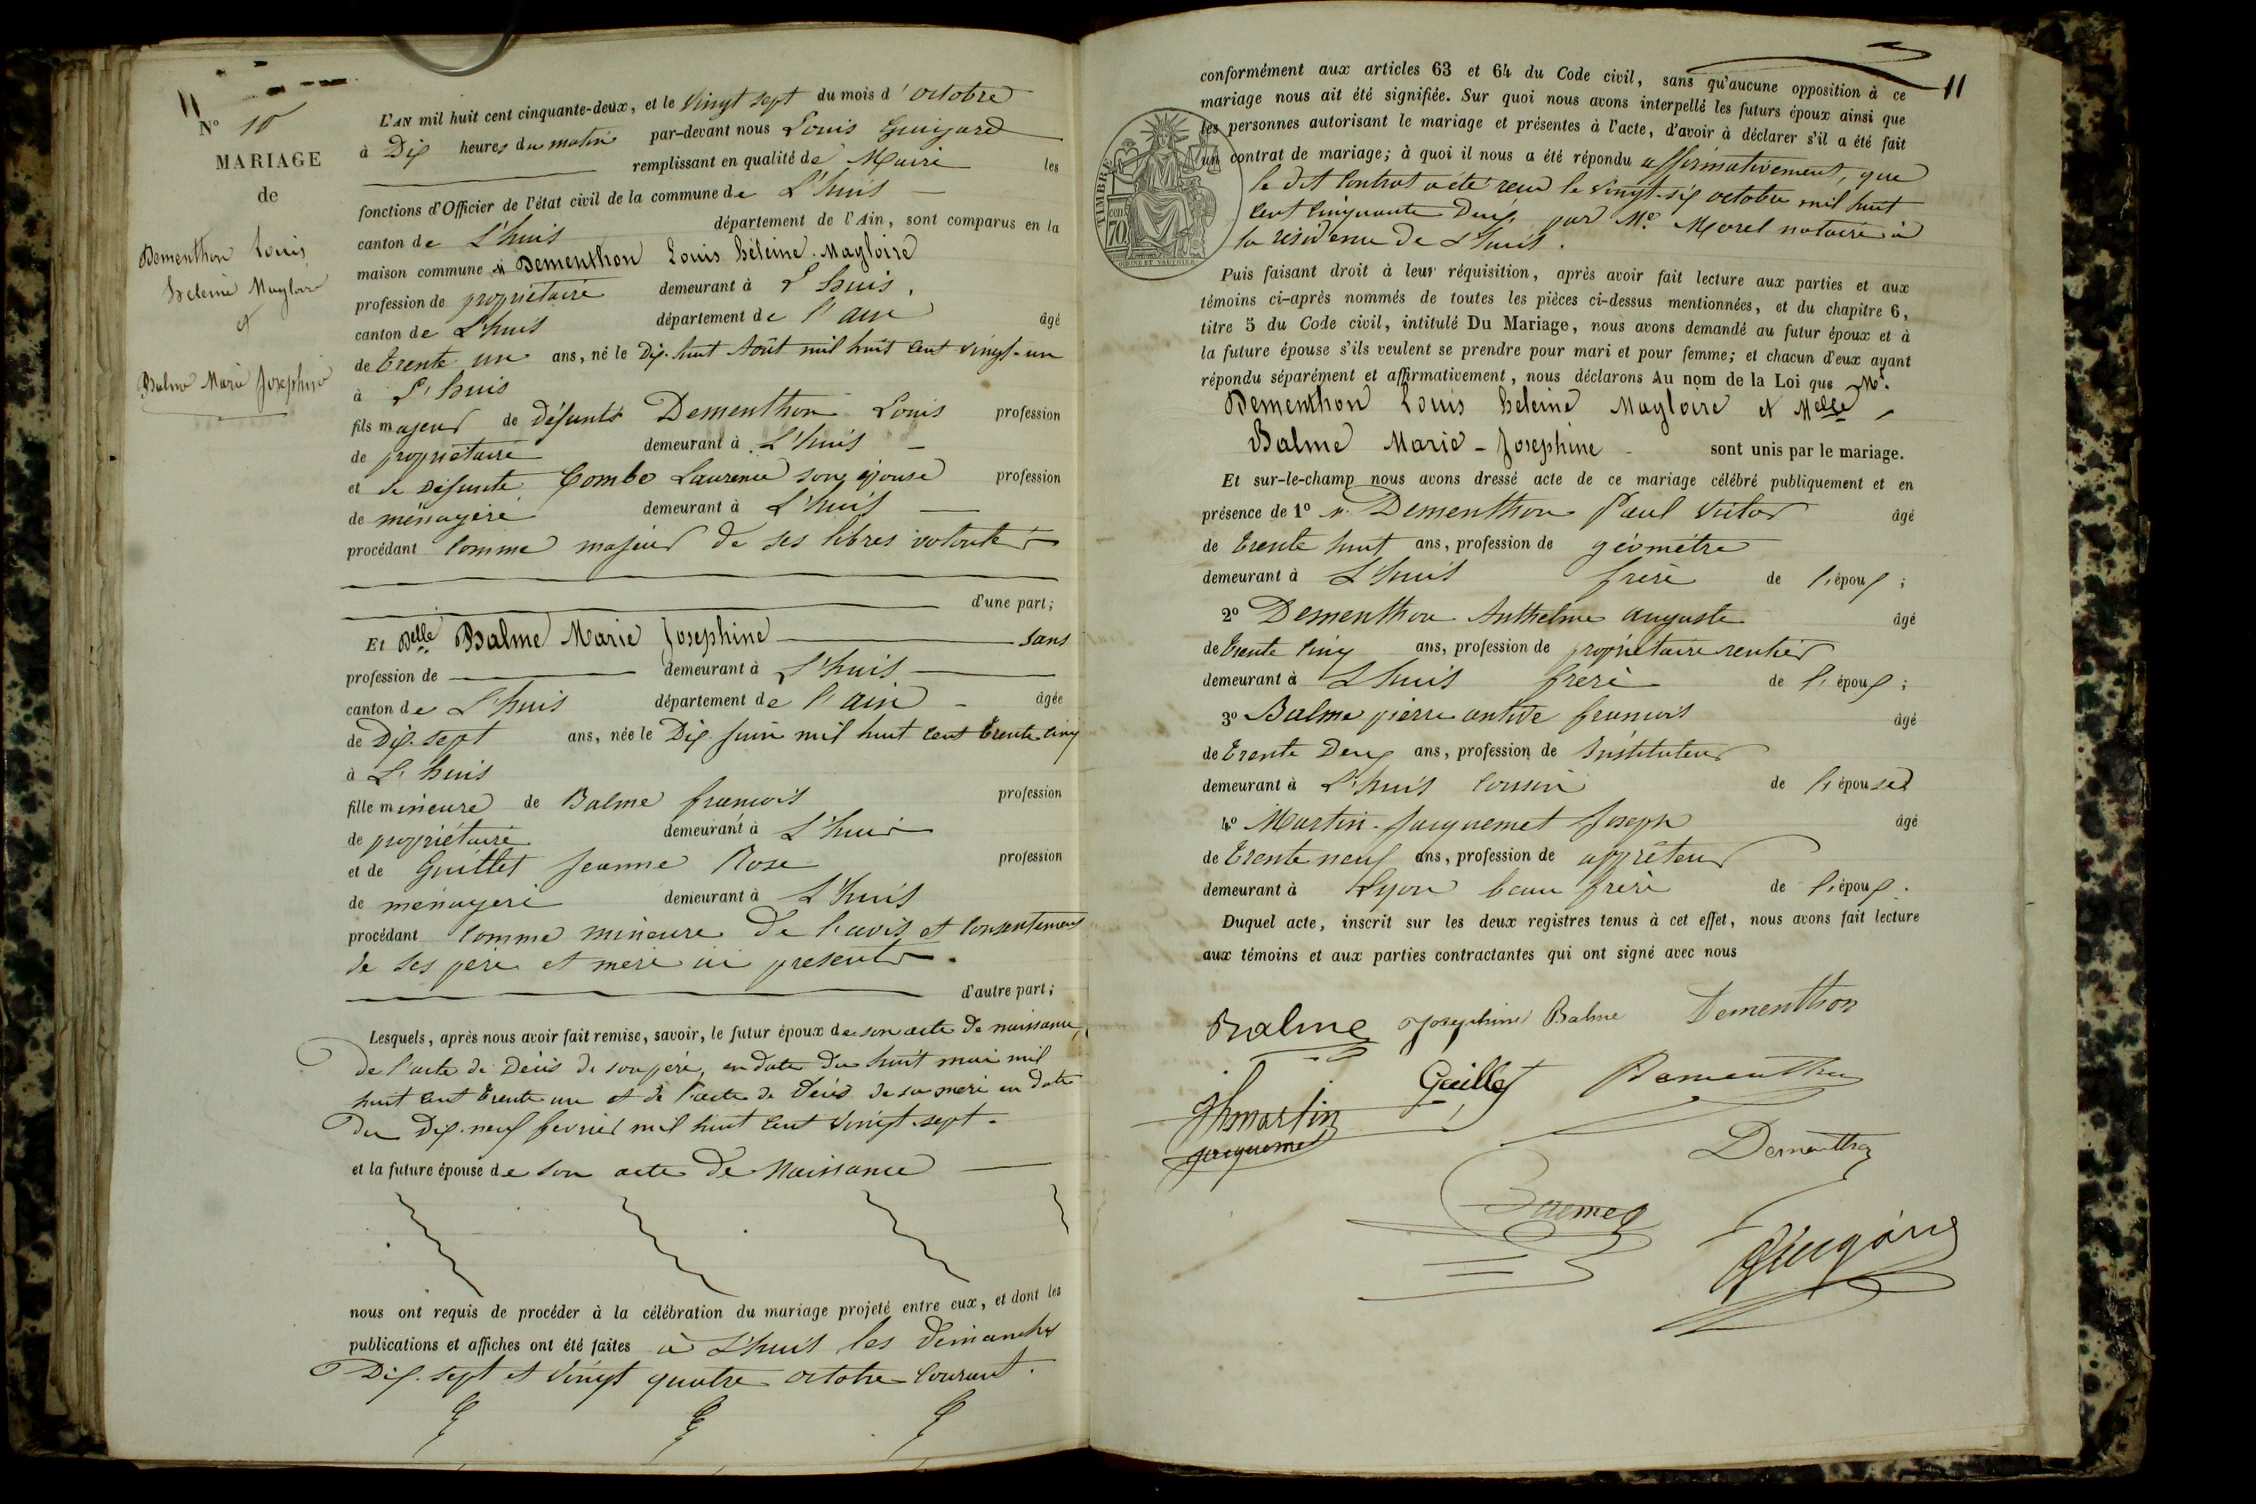 11
N° 10
MARIAGE
de
Dementhon Louis
héleine Magloire
et
Balme Marie Josephine
L'AN mil huit cent cinquante-deux, et le vingt sept du mois d'octobre
à Dix heures du matin par-devant nous Louis Guigard
remplissant en qualité de Maire les
fonctions d'Officier de l'état civil de la commune de L'huis
canton de L'huis département de l'Ain, sont comparus en la
maison commune Mr Dementhon Louis héleine Magloire
profession de propriétaire demeurant à L'huis,
canton de L'huis département de l'ain âgé
de trente un ans, né le Dix-huit Août mil huit cent vingt-un
à L'huis
fils majeur de défunts Dementhon Louis profession
de propriétaire demeurant à L'huis
et de défunte Combe Laurence son épouse profession
de ménagère demeurant à L'huis
procédant comme majeur de ses libres volontés
d'une part;
Et Delle Balme Marie Josephine sans
profession de demeurant à L'huis
canton de L'huis département de l'ain âgée
de Dix-sept ans, née le Dix Juin mil huit cent trente cinq
à L'huis
fille mineure de Balme françois profession
de propriétaire demeurant à L'huis
et de Guillet Jeanne Rose profession
de ménagère demeurant à L'huis
procédant comme mineure de l'avis et consentement
de ses père et mère ici présents.
d'autre part;
Lesquels, après nous avoir fait remise, savoir, le futur époux de son acte de naissance,
de l'acte de décès de son père, en date du huit mai mil
huit cent trente un et de l'acte de décès de sa mère en date
du dix-neuf fevrier mil huit cent vingt-sept.
et la future épouse de son acte de Naissance
nous ont requis de procéder à la célébration du mariage projeté entre eux, et dont les
publications et affiches ont été faites à L'huis les dimanches
Dix-sept et vingt quatre octobre courant.
11
conformément aux articles 63 et 64 du Code civil, sans qu'aucune opposition à ce
mariage nous ait été signifiée. Sur quoi nous avons interpellé les futurs époux ainsi que
les personnes autorisant le mariage et présentes à l'acte, d'avoir à déclarer s'il a été fait
un contrat de mariage; à quoi il nous a été répondu affirmativement, que
le dit contrat a été recu le vingt-six octobre mil huit
cent cinquante deux, par Me Morel notaire à
la résidence de L'huis.
TIMBRE
70
Puis faisant droit à leur réquisition, après avoir fait lecture aux parties et aux
témoins ci-après nommés de toutes les pièces ci-dessus mentionnées, et du chapitre 6,
titre 5 du Code civil, intitulé Du Mariage, nous avons demandé au futur époux et à
la future épouse s'ils veulent se prendre pour mari et pour femme; et chacun d'eux ayant
répondu séparément et affirmativement, nous déclarons Au nom de la Loi que Mr.
Dementhon Louis héleine Magloire et Melle
Balme Marie-Josephine sont unis par le mariage.
Et sur-le-champ nous avons dressé acte de ce mariage célébré publiquement et en
présence de 1° Mr Dementhon Paul Victor âgé
de trente huit ans, profession de géomètre
demeurant à L'huis frère de l'époux;
2° Dementhon Anthelme auguste âgé
de trente cinq ans, profession de propriétaire rentier
demeurant à L'huis frère de l'époux;
3° Balme pierre françois âgé
de trente Deux ans, profession de Instituteur
demeurant à L'huis cousin de l'épouse
4° Martin-Jacquemet Joseph âgé
de trente neuf ans, profession de apprêteur
demeurant à Lyon beau frère de l'époux.
Duquel acte, inscrit sur les deux registres tenus à cet effet, nous avons fait lecture
aux témoins et aux parties contractantes qui ont signé avec nous
Balme Josephine Balme Dementhon
Guillet Dementhon
Jh martin
jacquemet
Dementhon
Guigard